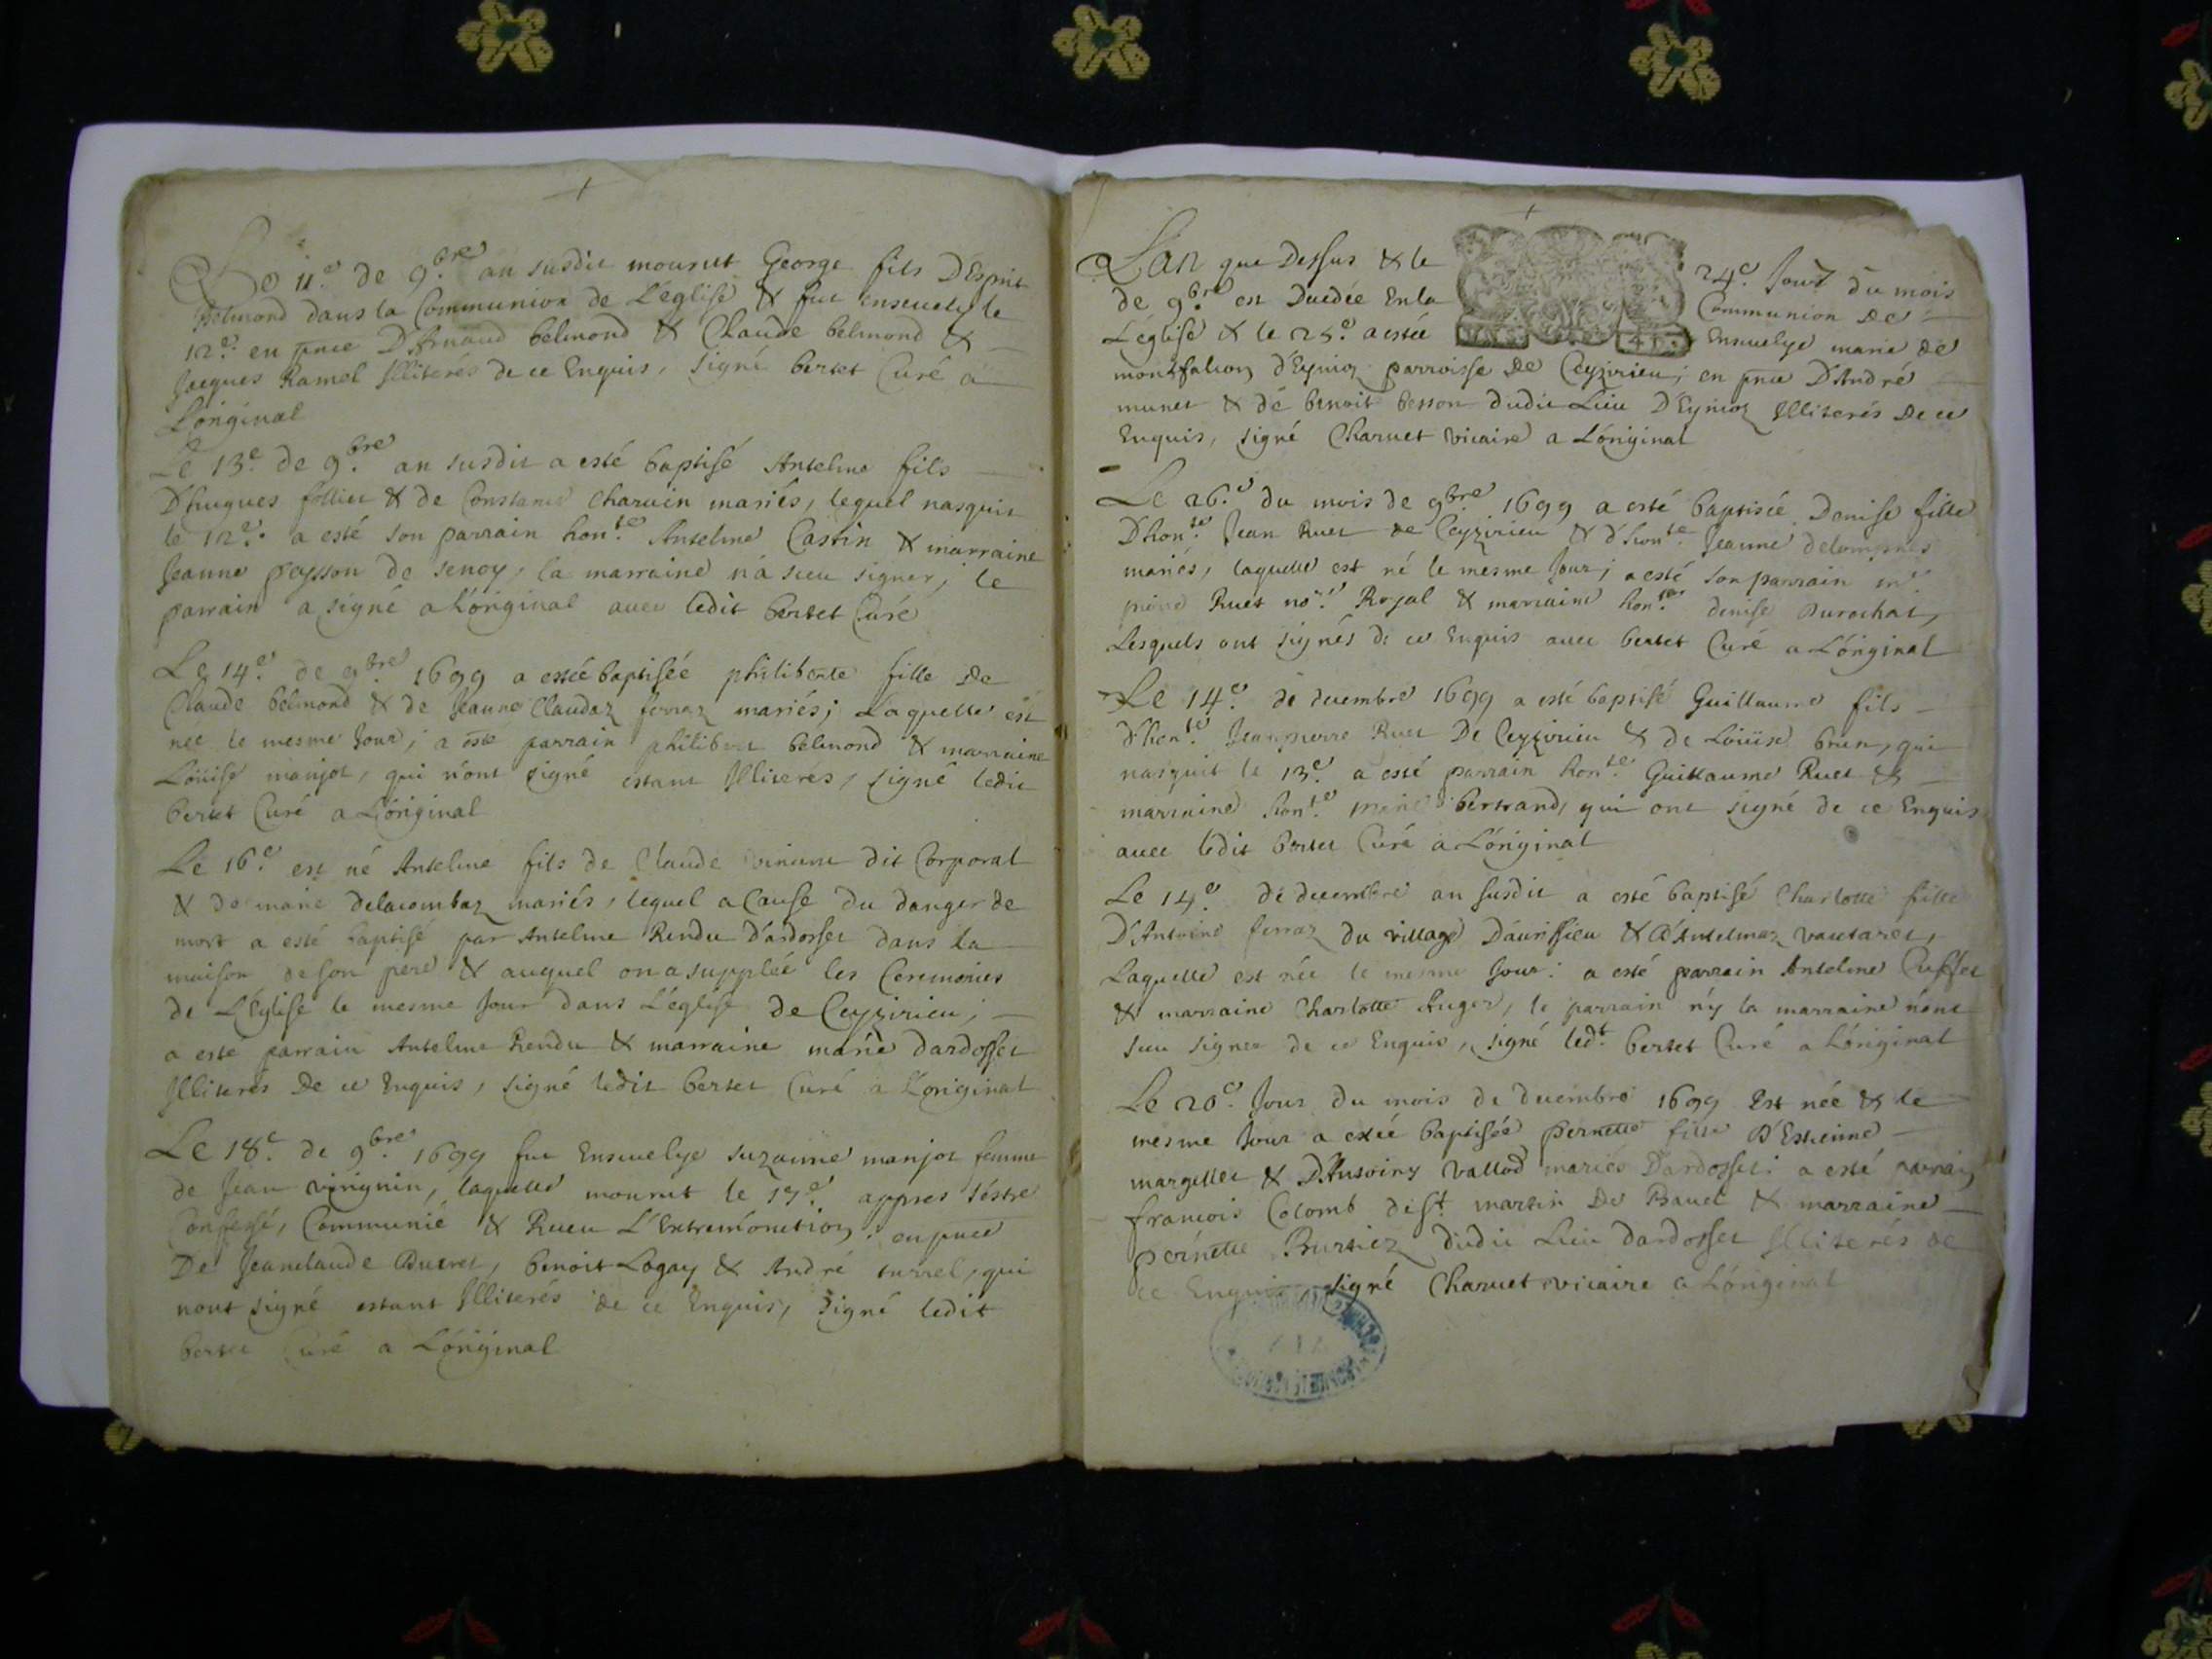 Le 11.e de 9.bre an susdit mourut George fils D'Esprit
belmond dans la Communion de L'eglise & fut ensevely le
12.e en pnce D'Arnaud belmond & Claude belmond &
Jacques Ramel Illiterés de ce Enquis, signé bertet Curé a
L'original
Le 13.e de 9.bre an susdit a esté baptisé Antelme fils
D'hugues folliet & de Constance Charvin mariés, lequel nasquit
le 12.e a esté son parrain hon.te Antelme Castin & marraine
Jeanne poysson de senoy, la marraine n'a sceu signer, le
parrain a signé a L'original avec ledit bertet Curé
Le 14.e de 9.bre 1699 a estée baptisée philiberte fille de
Claude belmond & de Jeanne Claudaz ferraz mariés; Laquelle est
née le mesme Jour; a esté parrain philibert belmond & marraine
Loüise manjot, qui n'ont signé estant Illiterés, signé ledit
bertet Curé a L'original
Le 16.e est né Antelme fils de Claude dit Corporal
& de marie delacombaz mariés, lequel a Cause du danger de
mort a esté baptisé par Antelme Rendu d'ardosset dans la
maison de son pere & auquel on a supplée les Ceremonies
de L'église le mesme Jour dans L'église de Ceyzirieu;
a esté parrain Antelme Rendu & marraine marie dardosset
Illiterés de ce Enquis, signé ledit bertet Curé a L'original
Le 18.e de 9.bre 1699 fut Ensevelye suzanne manjot femme
de Jean virignin, laquelle mourut le 17.e appres s'éstre
Confessé, Communié & Receu L'Extremonction, en pnce
De Jeanclaude Ducret, benoit Logay & André turrel, qui
nont signé estant Illiterés de ce Enquis, signé ledit
bertet Curé a L'original
L'an que Dessus & le 24.e Jour du mois
de 9.bre est Decedée En la Communion de
L'église & le 25.e a estée Ensevelye marie de
montfalcon d'Eynioz parroisse de Ceyzirieu; en pnce D'André
munet & de benoit besson dudit Lieu D'Eynioz Illiterés de ce
Enquis, signé Charvet vicaire a L'original
Le 26.e du mois de 9.bre 1699 a esté baptisée Denise fille
D'hon.te Jean Ruet de Ceyzirieu & d'hon.te Jeanne delompnes
mariés, laquelle est né le mesme Jour; a esté son parrain m.e
pierre Ruet no.re Royal & marraine hon.te denise Durochat,
Lesquels ont signés de ce Enquis avec bertet Curé a L'original
Le 14.e de decembre 1699 a esté baptisé Guillaume fils
d'hon.te Jeanpierre Ruet De Ceyzirieu & de Loüise brun, qui
nasquit le 13.e a esté parrain hon.te Guillaume Ruet &
marraine hon.te bertrand, qui ont signé de ce Enquis
avec ledit bertet Curé a L'original
Le 14.e de decembre an susdit a esté baptisé Charlotte fille
D'Antoine ferraz du village D'aurissieu & d'Antelmaz vautaret,
Laquelle est née le mesme Jour: a esté parrain Antelme Cusset
& marraine Charlotte Auger, le parrain n'y la marraine n'ont
sceu signer de ce Enquis, signé led.t bertet Curé a L'original
Le 20.e Jour du mois de decembre 1699 Est née & le
mesme Jour a estée baptisée pernette fille D'Estienne
margellet & D'Antoiny vallod mariés Dardosset: a esté parrain
francois Colomb de S.t martin De Bavel & marraine
pernette Burtiez dudit Lieu dardosset Illiterés de
ce Enquis, signé Charvet vicaire a L'original